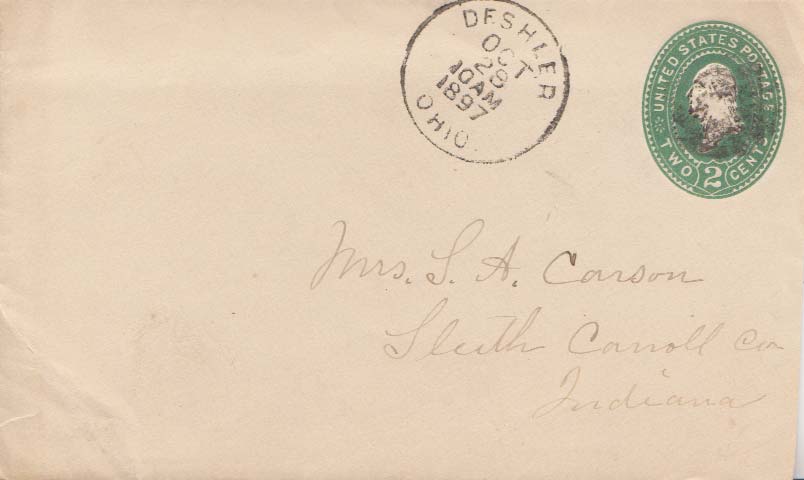 DESHLER
OCT
28
10AM
1897
OHIO.
UNITED STATES POSTAGE
TWO 2 CENTS
Mrs. S. A. Carson
Sleeth Carroll Co
Indiana